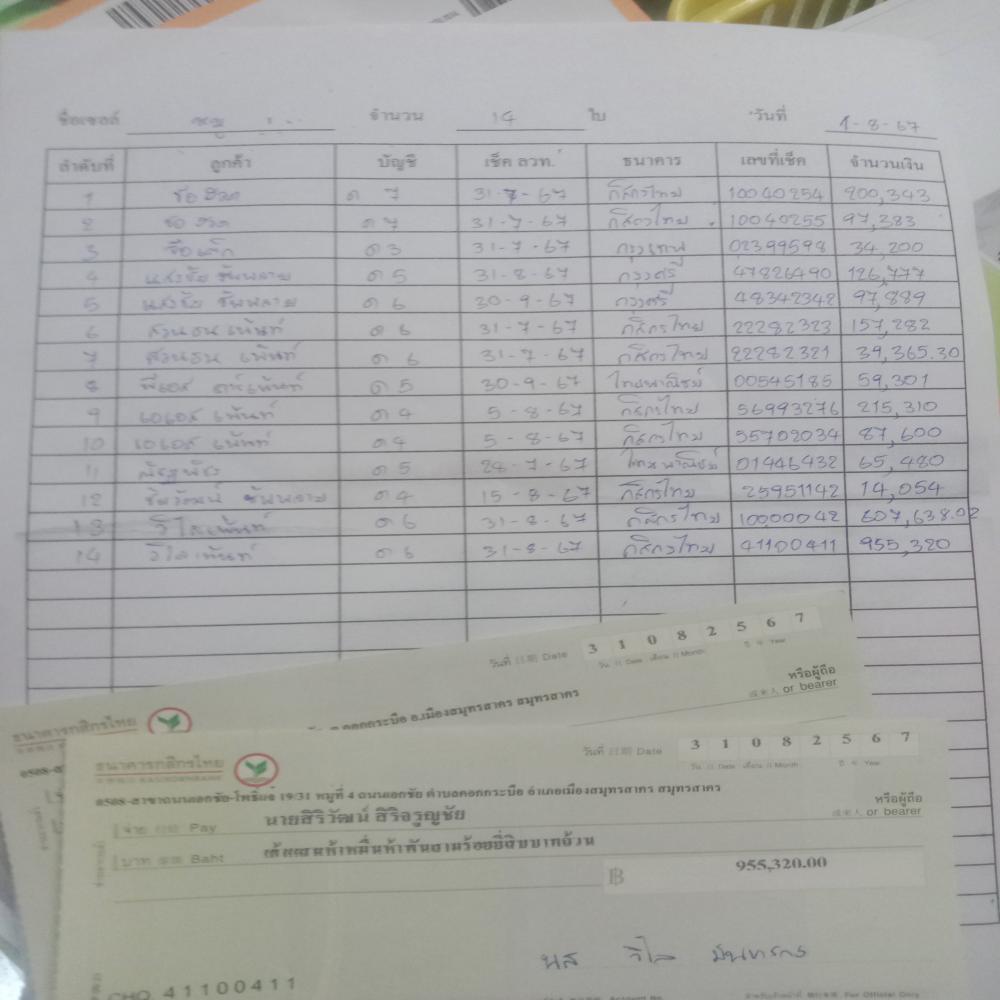 ชื่อเซลล์ จำนวน 14 ใบ วันที่ 1-8-67
ลำดับที่ ลูกค้า บัญชี เช็ค ลวท. ธนาคาร เลขที่เช็ค จำนวนเงิน
1 ด 7 31-7-67 กสิกรไทย 10040254 200,343
2 ด 7 31-7-67 กสิกรไทย 10040255 97,383
3 ด 3 31-7-67 กรุงเทพ 02399598 34,200
4 ด 5 31-8-67 กรุงศรี 47826490 126,777
5 ด 6 30-9-67 กรุงศรี 48342342 97,889
6 สวนธน เพ้นท์ ด 6 31-7-67 กสิกรไทย 22282323 157,282
7 สวนธน เพ้นท์ ด 6 31-7-67 กสิกรไทย 22282321 39,365.30
8 พีเอส เพ้นท์ ด 5 30-9-67 ไทยพาณิชย์ 00545185 59,301
9 เอเอส เพ้นท์ ด 4 5-8-67 กสิกรไทย 56993276 215,310
10 เอเอส เพ้นท์ ด 4 5-8-67 กสิกรไทย 55702034 87,600
11 ด 5 28-7-67 ไทยพาณิชย์ 01446432 65,480
12 ด 4 15-8-67 กสิกรไทย 25951142 14,054
13 วิไล เพ้นท์ ด 6 31-8-67 กสิกรไทย 10000042 607,638.02
14 วิไล เพ้นท์ ด 6 31-8-67 กสิกรไทย 41100411 955,320
วันที่ 日期 Date 3 1 0 8 2 5 6 7
วัน 日 Date เดือน 月 Month ปี 年 Year
หรือผู้ถือ
或來人 or bearer
ธนาคารกสิกรไทย
คอกกระบือ อ.เมืองสมุทรสาคร สมุทรสาคร
วันที่ 日期 Date 3 1 0 8 2 5 6 7
วัน 日 Date เดือน 月 Month ปี 年 Year
ธนาคารกสิกรไทย
0508-สาขาถนนเอกชัย-โพธิ์แจ้ 19/31 หมู่ที่ 4 ถนนเอกชัย ตำบลคอกกระบือ อำเภอเมืองสมุทรสาคร สมุทรสาคร
หรือผู้ถือ
或來人 or bearer
จ่าย 付給 Pay นายสิริวัฒน์ สิริจรูญชัย
บาท 泰銖 Baht เก้าแสนห้าหมื่นห้าพันสามร้อยยี่สิบบาทถ้วน
฿ 955,320.00
นส วิไล
CHQ 41100411